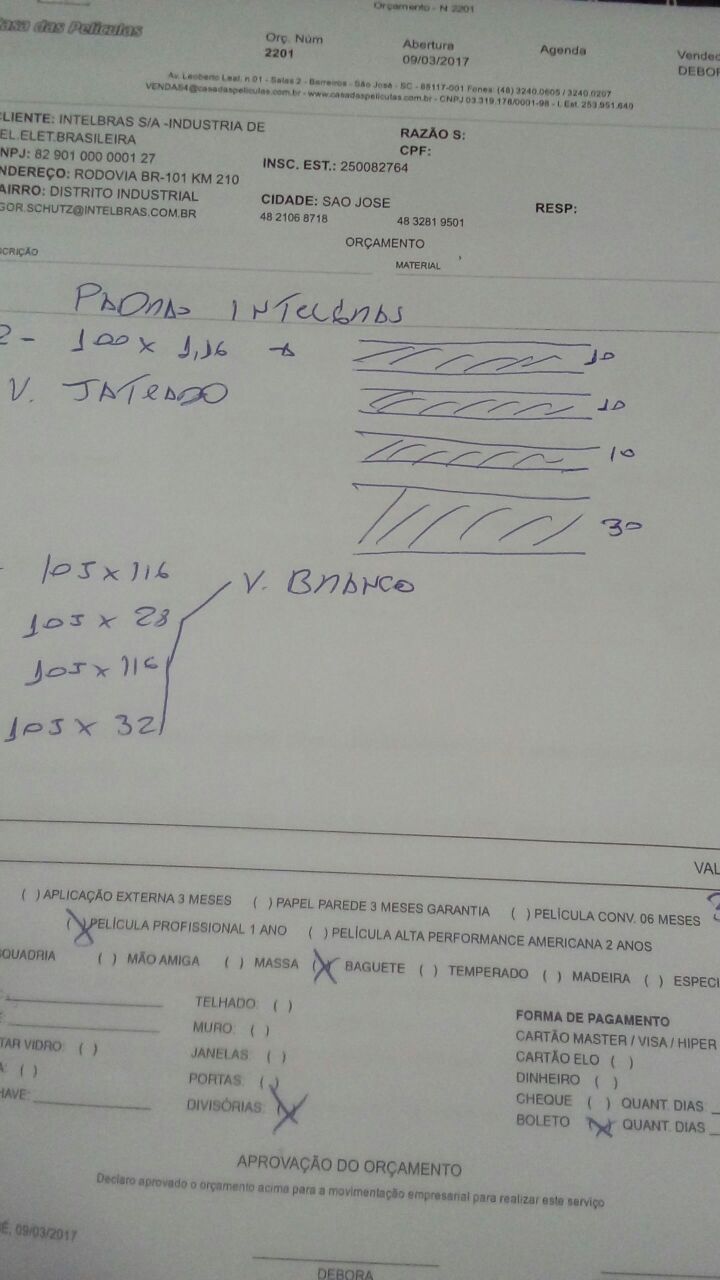 Orçamento - N 2201
asa das Películas
Orç. Núm
2201
Abertura
09/03/2017
Agenda
Vended
DEBOR
Av. Leoberto Leal, n.01 - Salas 2 - Barreiros - São José - SC - 88117-001 Fones: (48) 3240.0605 / 3240.0207
VENDAS4@casadaspeliculas.com.br - www.casadaspeliculas.com.br - CNPJ 03.319.176/0001-98 - I. Est. 253.951.640
CLIENTE: INTELBRAS S/A -INDUSTRIA DE
EL.ELET.BRASILEIRA
NPJ: 82 901 000 0001 27
NDEREÇO: RODOVIA BR-101 KM 210
AIRRO: DISTRITO INDUSTRIAL
GOR.SCHUTZ@INTELBRAS.COM.BR
RAZÃO S:
CPF:
INSC. EST.: 250082764
CIDADE: SAO JOSE
RESP:
48 2106 8718
48 3281 9501
ORÇAMENTO
SCRIÇÃO
MATERIAL
PADRÃO INTELBRAS
2 - 100 x 1,16
V. JATEADO
10
10
10
30
- 105 x 116
V. BRANCO
105 x 28
105 x 116
105 x 32
VAL
( ) APLICAÇÃO EXTERNA 3 MESES ( ) PAPEL PAREDE 3 MESES GARANTIA ( ) PELÍCULA CONV. 06 MESES
(X) PELÍCULA PROFISSIONAL 1 ANO ( ) PELÍCULA ALTA PERFORMANCE AMERICANA 2 ANOS
SQUADRIA ( ) MÃO AMIGA ( ) MASSA (X) BAGUETE ( ) TEMPERADO ( ) MADEIRA ( ) ESPECI
TELHADO: ( )
MURO: ( )
TAR VIDRO: ( )
JANELAS: ( )
A: ( )
PORTAS: ( )
HAVE:
DIVISÓRIAS: (X)
FORMA DE PAGAMENTO
CARTÃO MASTER / VISA / HIPER
CARTÃO ELO ( )
DINHEIRO ( )
CHEQUE ( ) QUANT. DIAS
BOLETO (X) QUANT. DIAS
APROVAÇÃO DO ORÇAMENTO
Declaro aprovado o orçamento acima para a movimentação empresarial para realizar este serviço
É, 09/03/2017
DEBORA